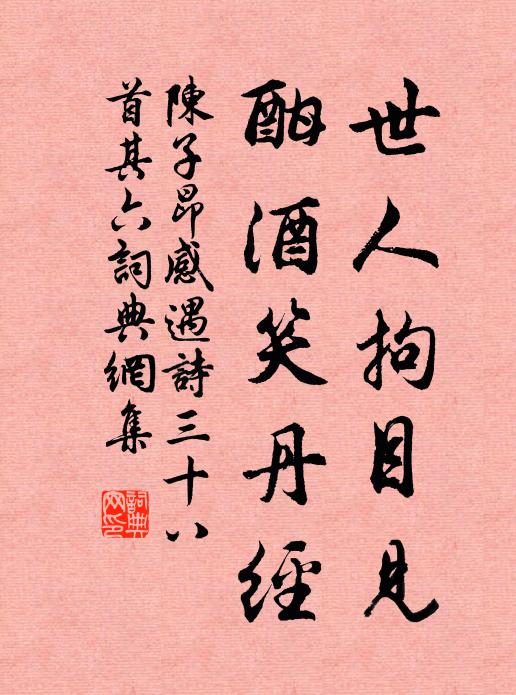 世人拘目見
酣酒笑丹經
陳子昂感遇詩三十八
首其六詞典網集
詞典
网印